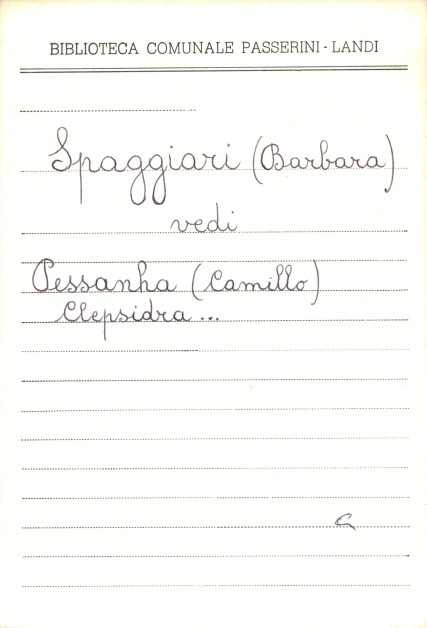 BIBLIOTECA COMUNALE PASSERINI - LANDI
Spaggiari (Barbara)
vedi
Pessanha (Camillo)
Clepsidra ...